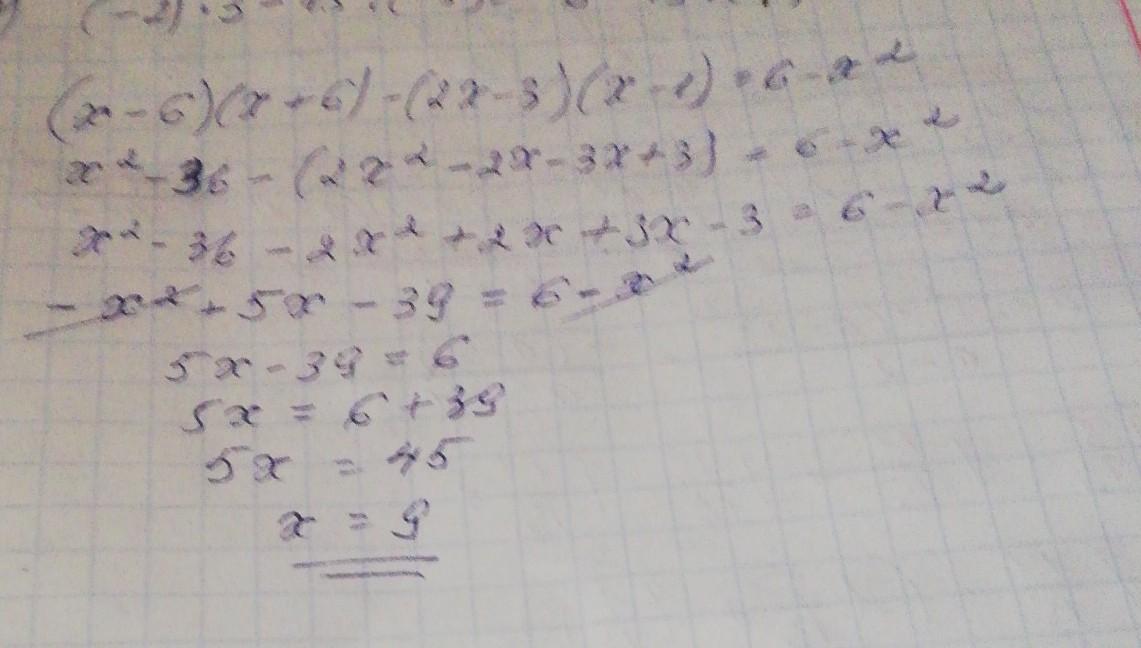 (x-6)(x+6)-(2x-3)(x-1)=6-x²
x²-36-(2x²-2x-3x+3)=6-x²
x²-36-2x²+2x+3x-3=6-x²
-x²+5x-39=6-x²
5x-39=6
5x=6+39
5x=45
x=9